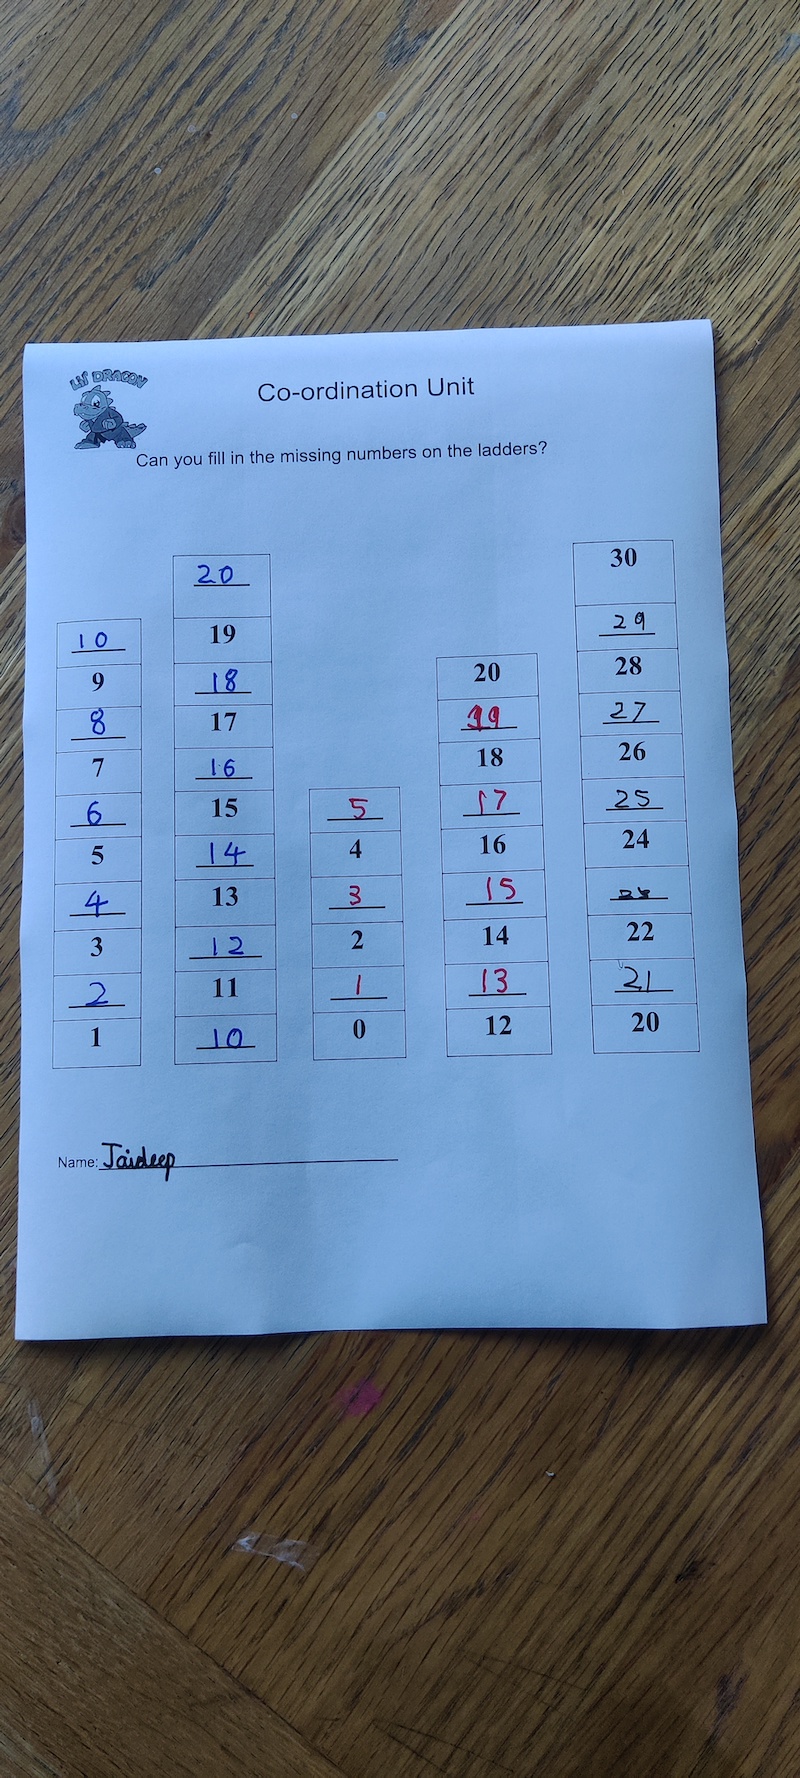 LIL' DRAGON
Co-ordination Unit
Can you fill in the missing numbers on the ladders?
10
9
8
7
6
5
4
3
2
1
20
19
18
17
16
15
14
13
12
11
10
5
4
3
2
1
0
20
19
18
17
16
15
14
13
12
30
29
28
27
26
25
24
22
21
20
Name: Jaideep